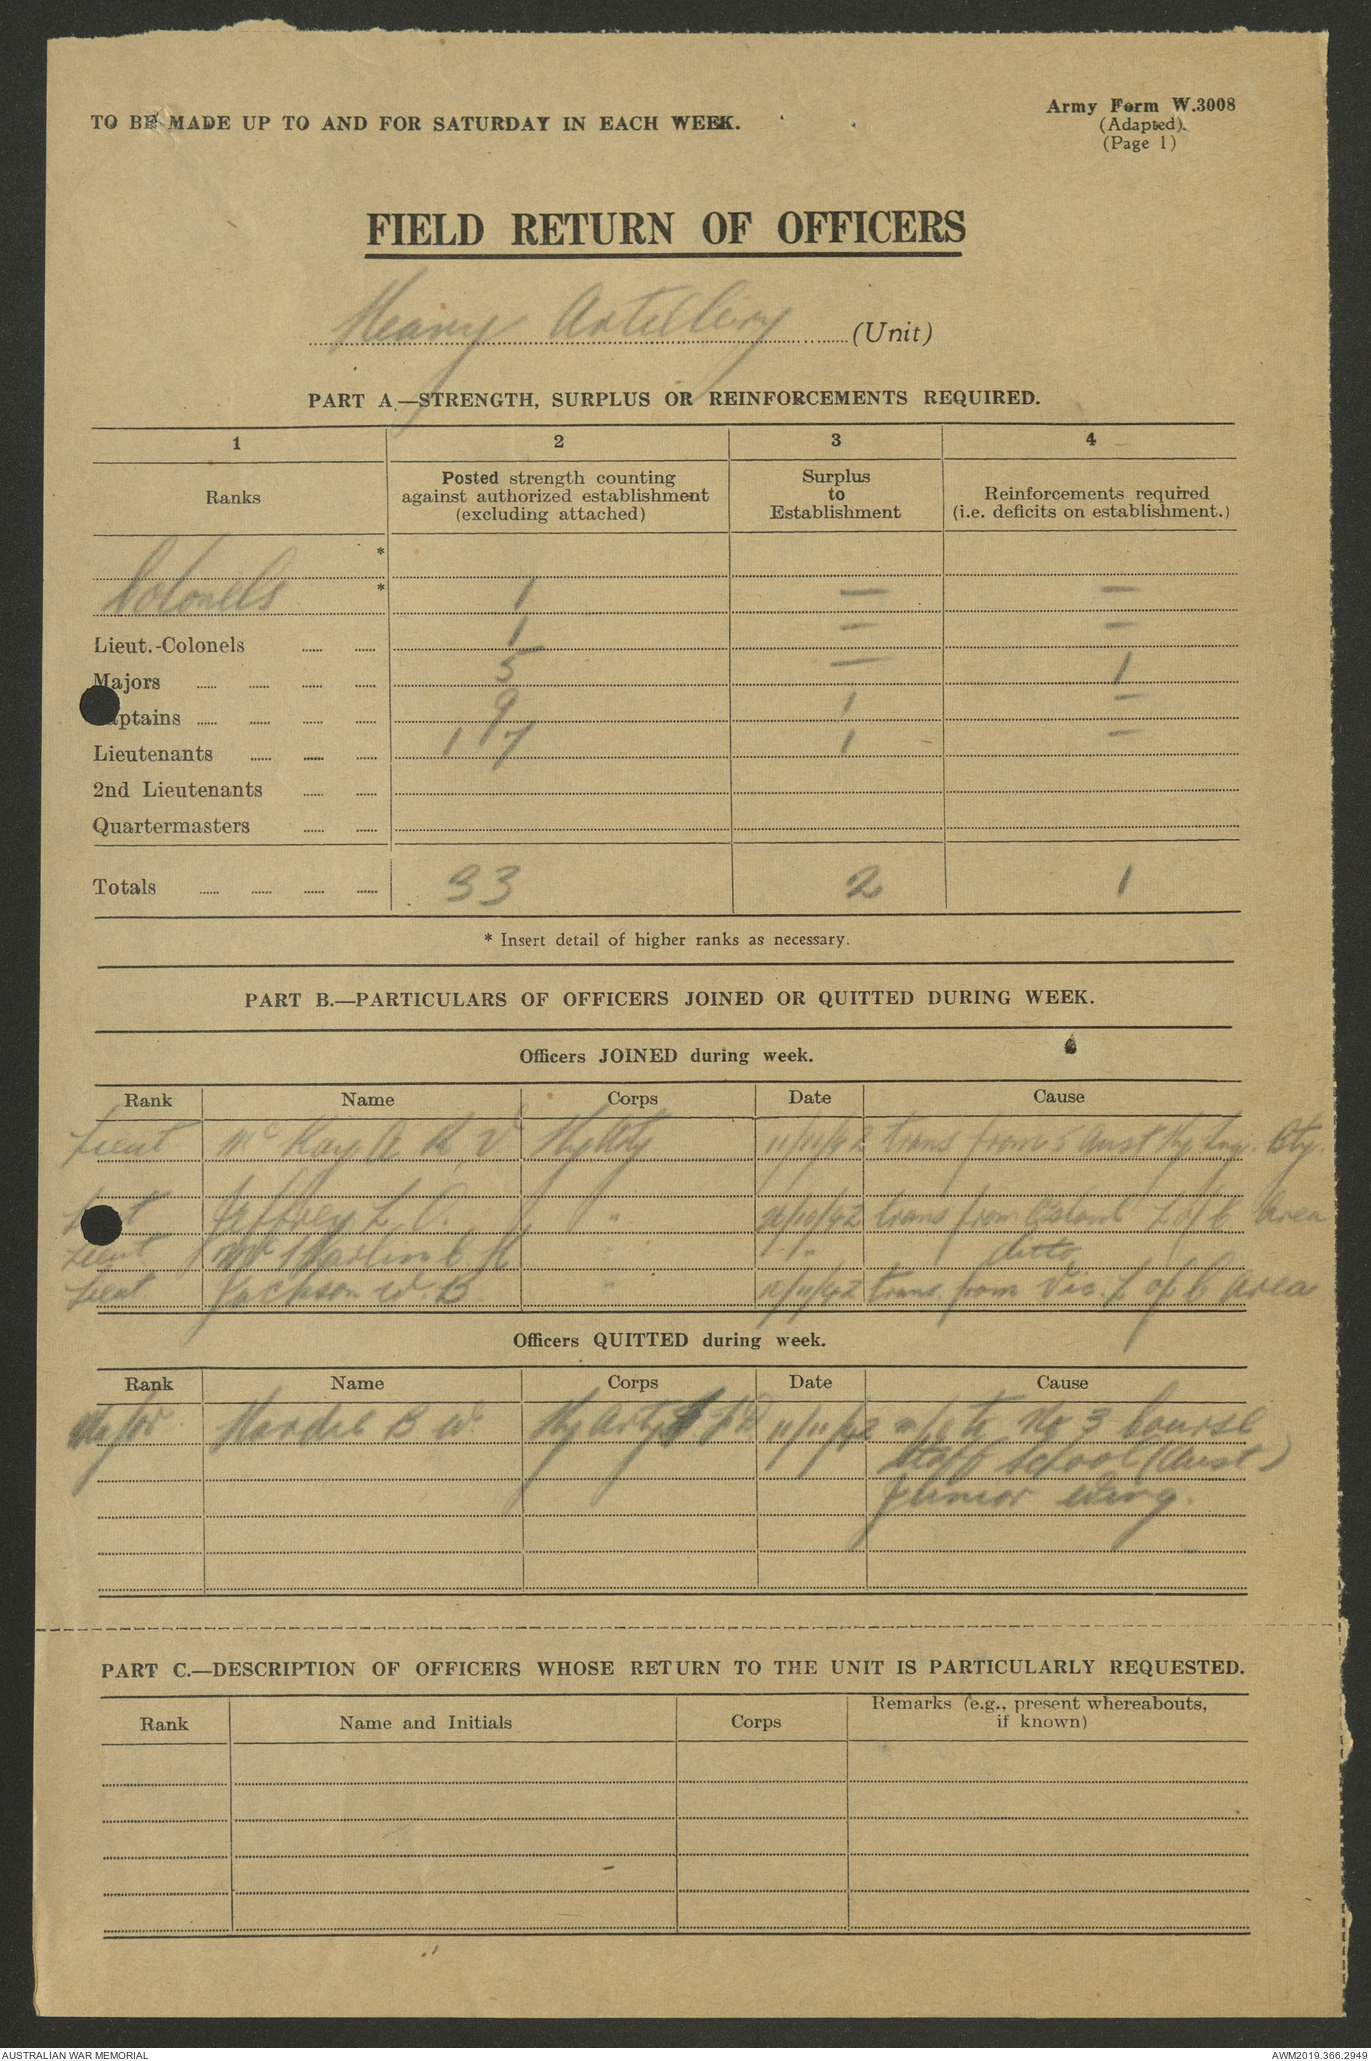 TO BE MADE UP TO AND FOR SATURDAY IN EACH WEEK.
Army Form W.3008
(Adapted).
(Page 1)
FIELD RETURN OF OFFICERS
Heavy Artillery (Unit)
PART A.—STRENGTH, SURPLUS OR REINFORCEMENTS REQUIRED.
1 2 3 4
Ranks
Posted strength counting
against authorized establishment
(excluding attached)
Surplus
to
Establishment
Reinforcements required
(i.e. deficits on establishment.)
*
Colonels * 1 — —
Lieut.-Colonels 1 — —
Majors 5 — 1
Captains 9 1 —
Lieutenants 17 1 —
2nd Lieutenants
Quartermasters
Totals 33 2 1
* Insert detail of higher ranks as necessary.
PART B.—PARTICULARS OF OFFICERS JOINED OR QUITTED DURING WEEK.
Officers JOINED during week.
Rank Name Corps Date Cause
Lieut McKay A. R. V Hy Arty 11/11/42 trans from 5 Aust Hy Trg. Bty.
Jeffrey L. O. " /10/42 trans from L of C Area
Lieut C H " " ditto
Lieut Jackson W. B. " 12/11/42 trans. from Vic. L of C Area
Officers QUITTED during week.
Rank Name Corps Date Cause
Major Hardie B W. Hy Arty 11/11/42 to No 3 Course
Staff School (Aust)
Junior Wing.
PART C.—DESCRIPTION OF OFFICERS WHOSE RETURN TO THE UNIT IS PARTICULARLY REQUESTED.
Rank Name and Initials Corps
Remarks (e.g., present whereabouts,
if known)
AUSTRALIAN WAR MEMORIAL
AWM2019.366.2949